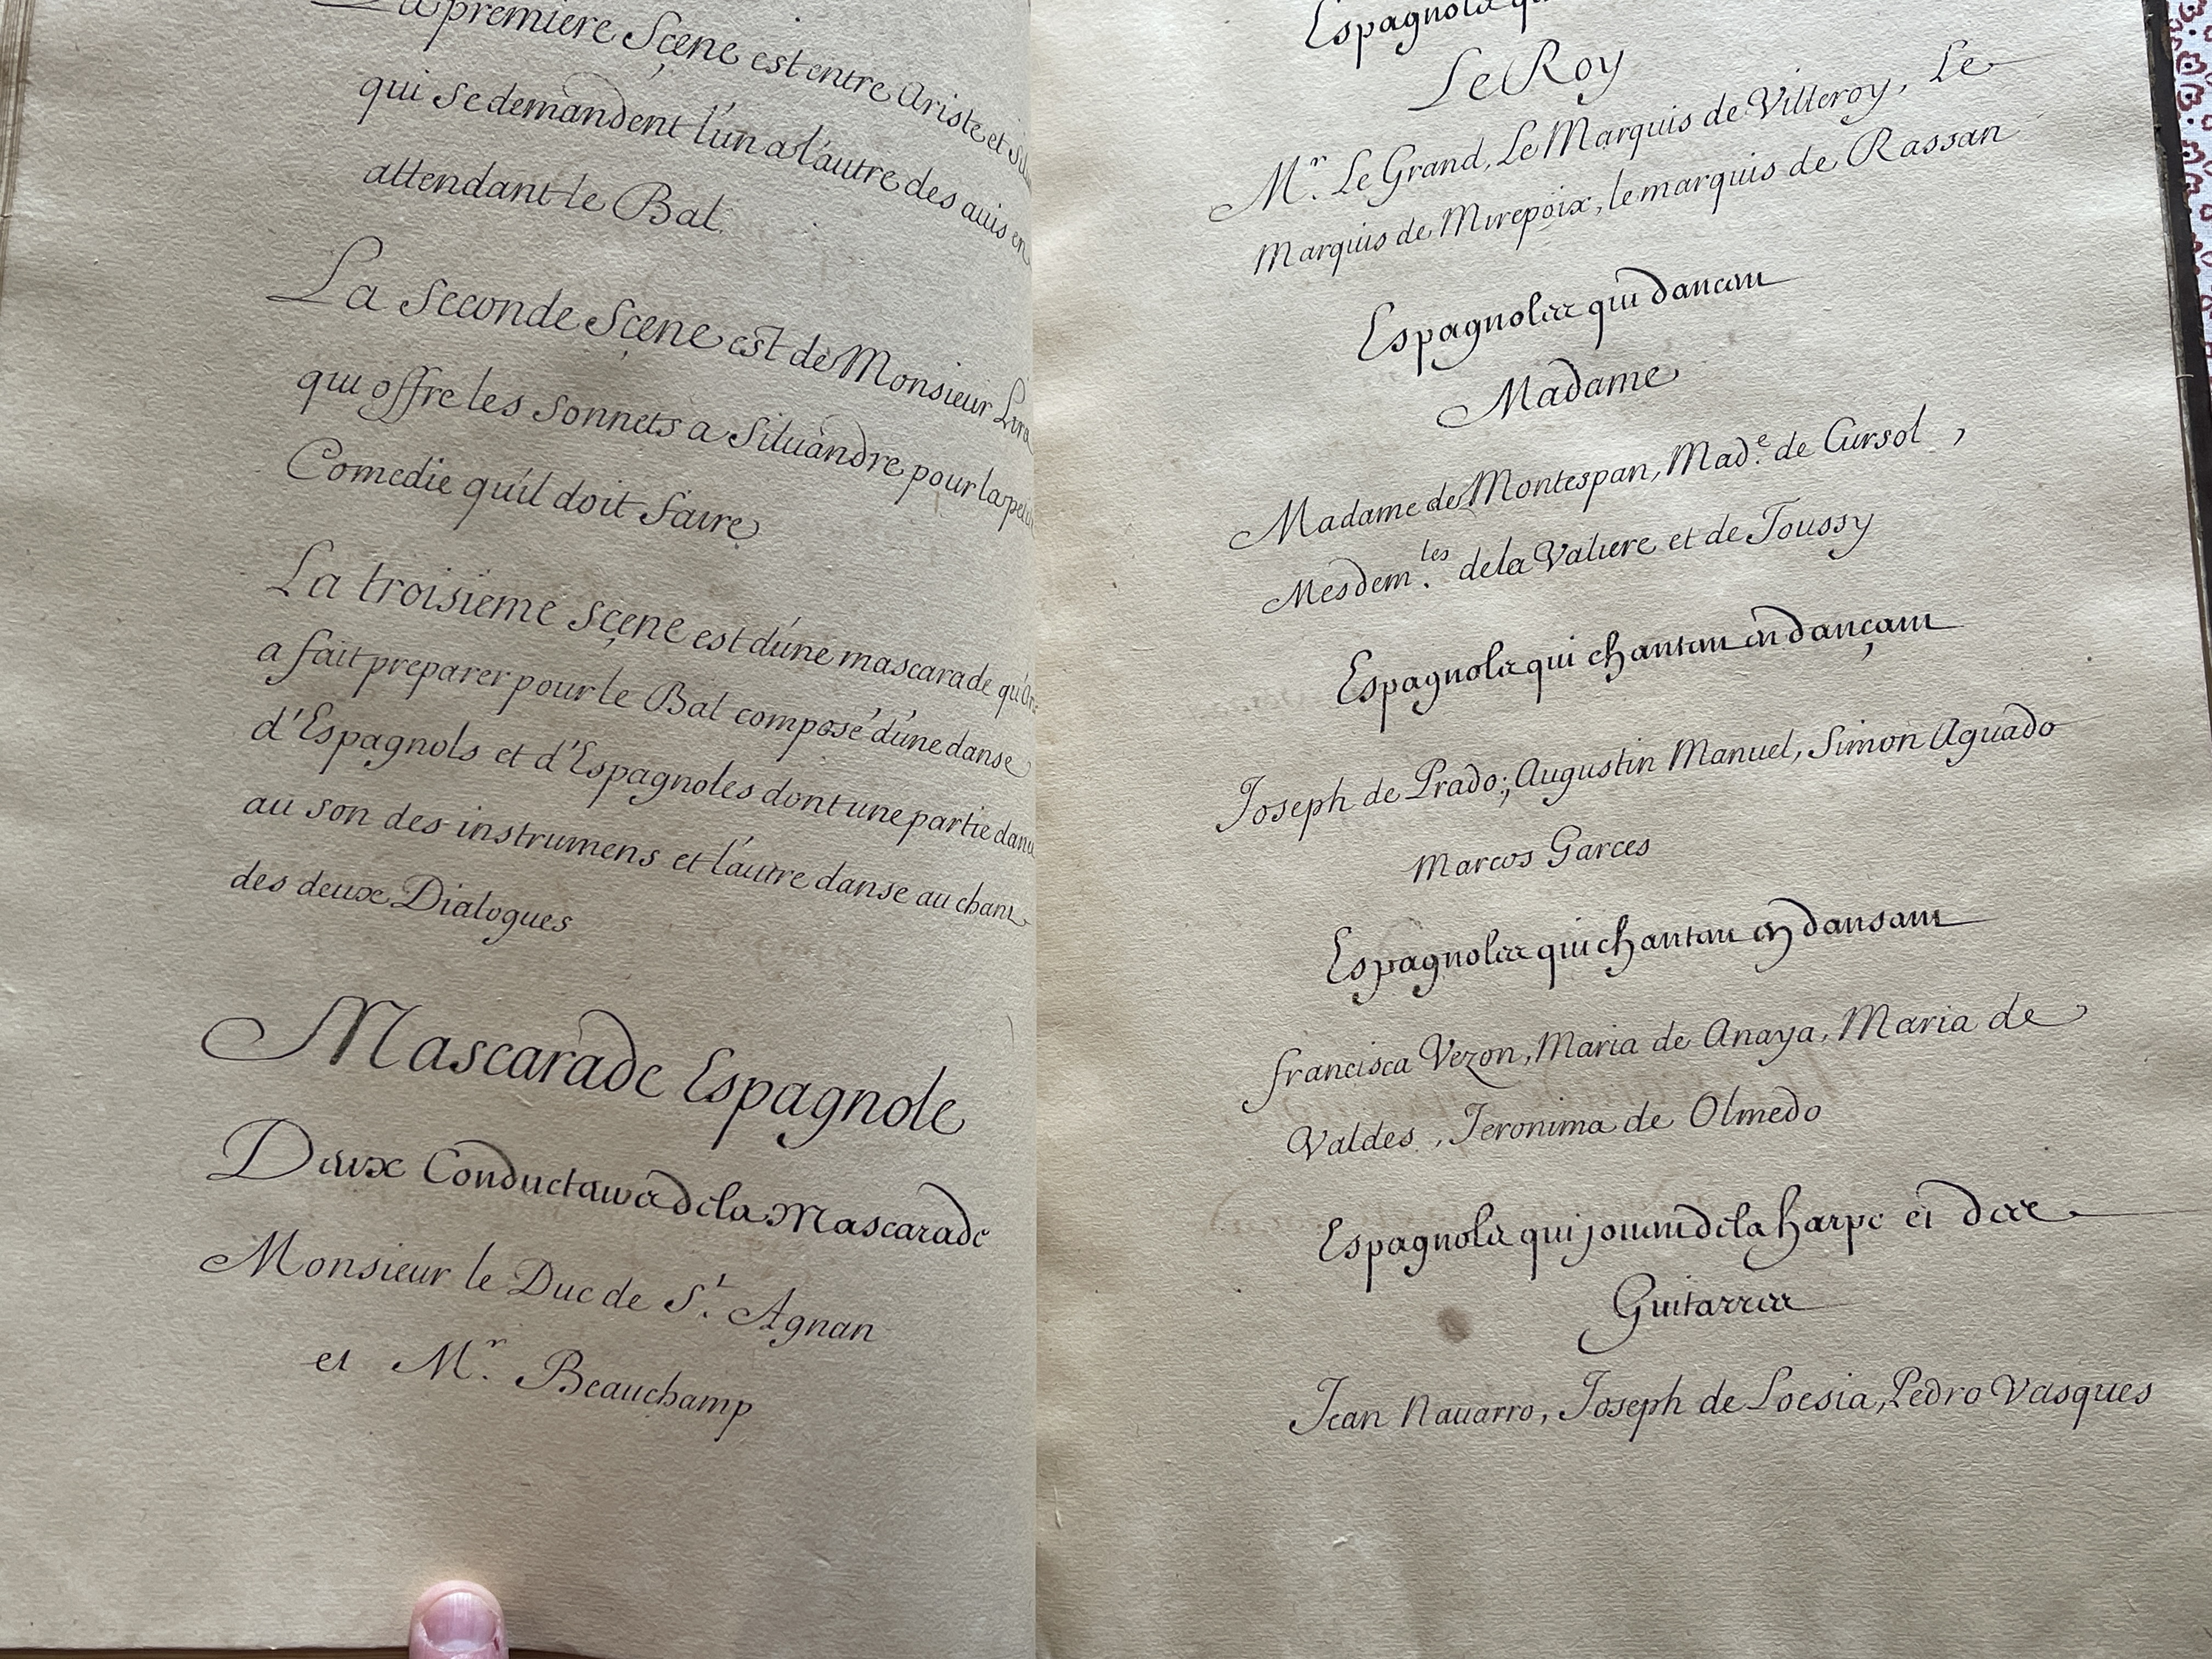 La premiere Sçene est entre Ariste et
qui se demandent l'un a l'autre des auis en
attendant le Bal.
La Seconde Sçene est de Monsieur
qui offre les Sonnets a Siluandre pour la
Comedie qu'il doit faire
La troisieme sçene est d'une mascarade
a fait preparer pour le Bal composé d'une danse
d'Espagnols et d'Espagnoles dont une partie
au son des instrumens et l'autre danse au chant
des deux Dialogues
Mascarade Espagnole
Deux Conducteurs de la Mascarade
Monsieur le Duc de St. Agnan
et Mr. Beauchamp
Le Roy
Mr. Le Grand, Le Marquis de Villeroy, Le
Marquis de Mirepoix, le marquis de Rassan
Espagnoles qui dancent
Madame
Madame de Montespan, Made. de Cursol,
Mesdem.les de la Valiere et de Toussy
Espagnols qui chantent en dançant
Joseph de Prado; Augustin Manuel, Simon Aguado
Marcos Garces
Espagnoles qui chantent en dansant
francisca Vezon, Maria de Anaya, Maria de
Valdes, Jeronima de Olmedo
Espagnols qui jouent de la harpe et des
Guitarres
Jean Nauarro, Joseph de Loesia, Pedro Vasques